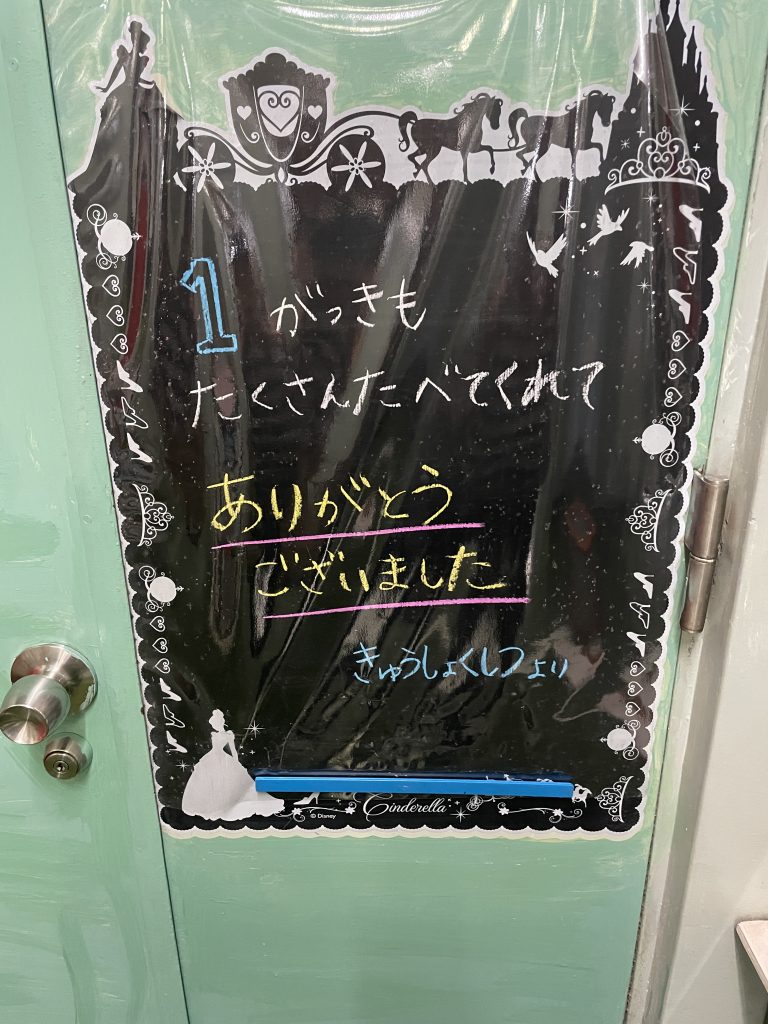 1 がっきも
たくさんたべてくれて
ありがとう
ございました
きゅうしょくしつより
Cinderella
© Disney